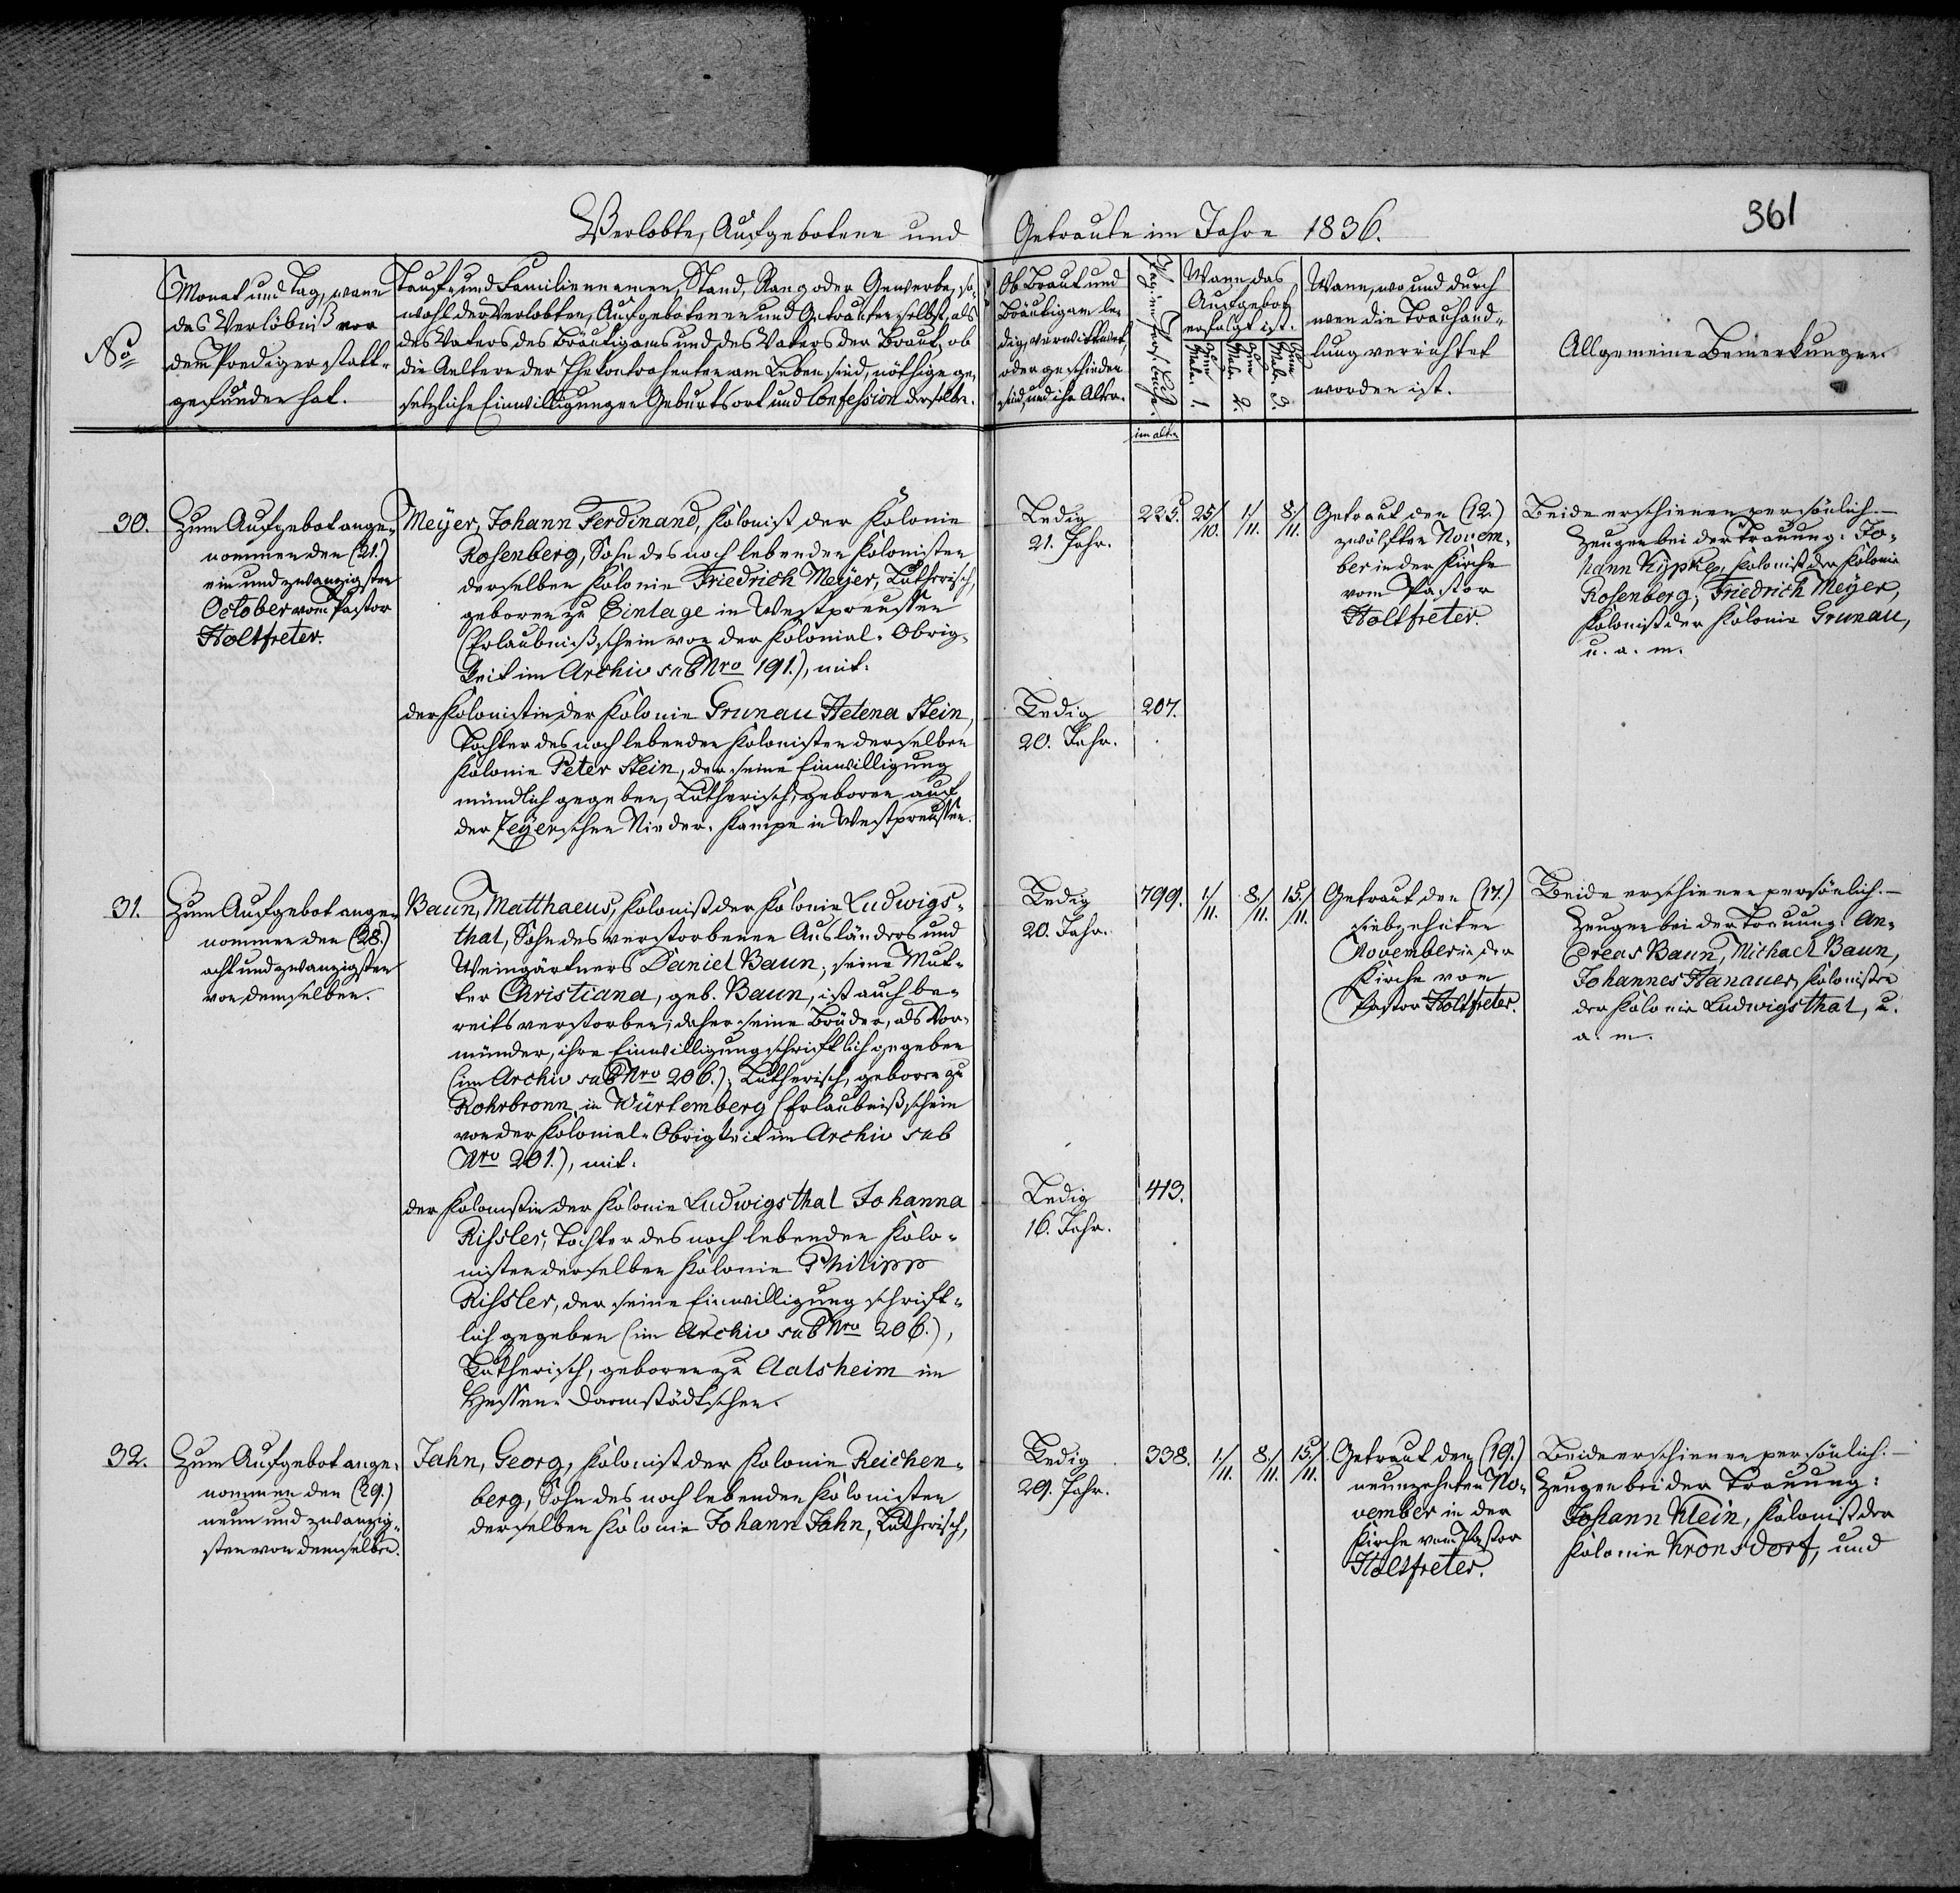 361
Verlobte, Aufgebotene und Getraute im Jahre 1836.
No
Monat und Tag, wann
das Verlöbniß vor
dem Prediger statt-
gefunden hat.
Tauf- und Familiennamen, Stand, Rang oder Gewerbe, so-
wohl der Verlobten, Aufgebotenen und Getrauten selbst, als
des Vaters des Bräutigams und des Vaters der Braut, ob
die Aeltern der Ehekontrahenten am Leben sind, nöthige ge-
setzliche Einwilligungen Geburtsort und Confession derselben.
Ob Braut und
Bräutigam le-
dig, verwittwet,
oder geschieden
sind, und ihr Alter.
Wann das
Aufgebot
erfolgt ist.
zum 1. Male.
zum 2. Male.
zum 3. Male.
Wann, wo und durch
wen die Trauhand-
lung verrichtet
worden ist.
Allgemeine Bemerkungen.
im alten
30.
Zum Aufgebot ange-
nommen den (21.)
ein und zwanzigsten
October vom Pastor
Holtfreter.
Meyer, Johann Ferdinand, Kolonist der Kolonie
Rosenberg, Sohn des noch lebenden Kolonisten
derselben Kolonie Friedrich Meyer, Lutherisch,
geboren zu Einlage in Westpreussen
(Erlaubnißschein von der Kolonial-Obrig-
keit im Archiv sub Nro 191.), mit
der Kolonistin der Kolonie Grunau Helena Stein,
Tochter des noch lebenden Kolonisten derselben
Kolonie Peter Stein, der seine Einwilligung
mündlich gegeben, Lutherisch, geboren auf
der Zeyerschen Nieder-Kampe in Westpreussen.
Ledig
21. Jahr.
225.
25/10.
1/11.
8/11.
Ledig
20. Jahr.
207.
Getraut den (12.)
zwölften Novem-
ber in der Kirche
vom Pastor
Holtfreter.
Beide erschienen persönlich. —
Zeugen bei der Trauung: Jo-
hann Kypke, Kolonist der Kolonie
Rosenberg; Friedrich Meyer,
Kolonist der Kolonie Grunau,
u. a. m.
31.
Zum Aufgebot ange-
nommen den (28.)
acht und zwanzigsten
von demselben.
Baun, Matthaeus, Kolonist der Kolonie Ludwigs-
thal, Sohn des verstorbenen Ausländers und
Weingärtners Daniel Baun; seine Mut-
ter Christiana, geb. Baun, ist auch be-
reits verstorben; daher seine Brüder, als Vor-
münder, ihre Einwilligung schriftlich gegeben
(im Archiv sub Nro 206.); Lutherisch, geboren zu
Rohrbronn in Würtemberg (Erlaubnißschein
von der Kolonial-Obrigkeit im Archiv sub
Nro 201.), mit
der Kolonistin der Kolonie Ludwigsthal Johanna
Rissler, Tochter des noch lebenden Kolo-
nisten derselben Kolonie Philipp
Rissler, der seine Einwilligung schrift-
lich gegeben (im Archiv sub Nro 206.),
Lutherisch, geboren zu Aalsheim im
Hessen-Darmstädtschen.
Ledig
20. Jahr.
799.
1/11.
8/11.
15/11.
Ledig
16. Jahr.
413.
Getraut den (17.)
siebzehnten
November in der
Kirche vom
Pastor Holtfreter.
Beide erschienen persönlich. —
Zeugen bei der Trauung: An-
dreas Baun, Michael Baun,
Johannes Hanauer, Kolonisten
der Kolonie Ludwigsthal, u.
a. m.
32.
Zum Aufgebot ange-
nommen den (29.)
neun und zwanzig-
sten von demselben.
Jahn, Georg, Kolonist der Kolonie Reichen-
berg, Sohn des noch lebenden Kolonisten
derselben Kolonie Johann Jahn, Lutherisch,
Ledig
29. Jahr.
338.
1/11.
8/11.
15/11.
Getraut den (19.)
neunzehnten No-
vember in der
Kirche vom Pastor
Holtfreter.
Beide erschienen persönlich. —
Zeugen bei der Trauung:
Johann Klein, Kolonist der
Kolonie Kronsdorf, und